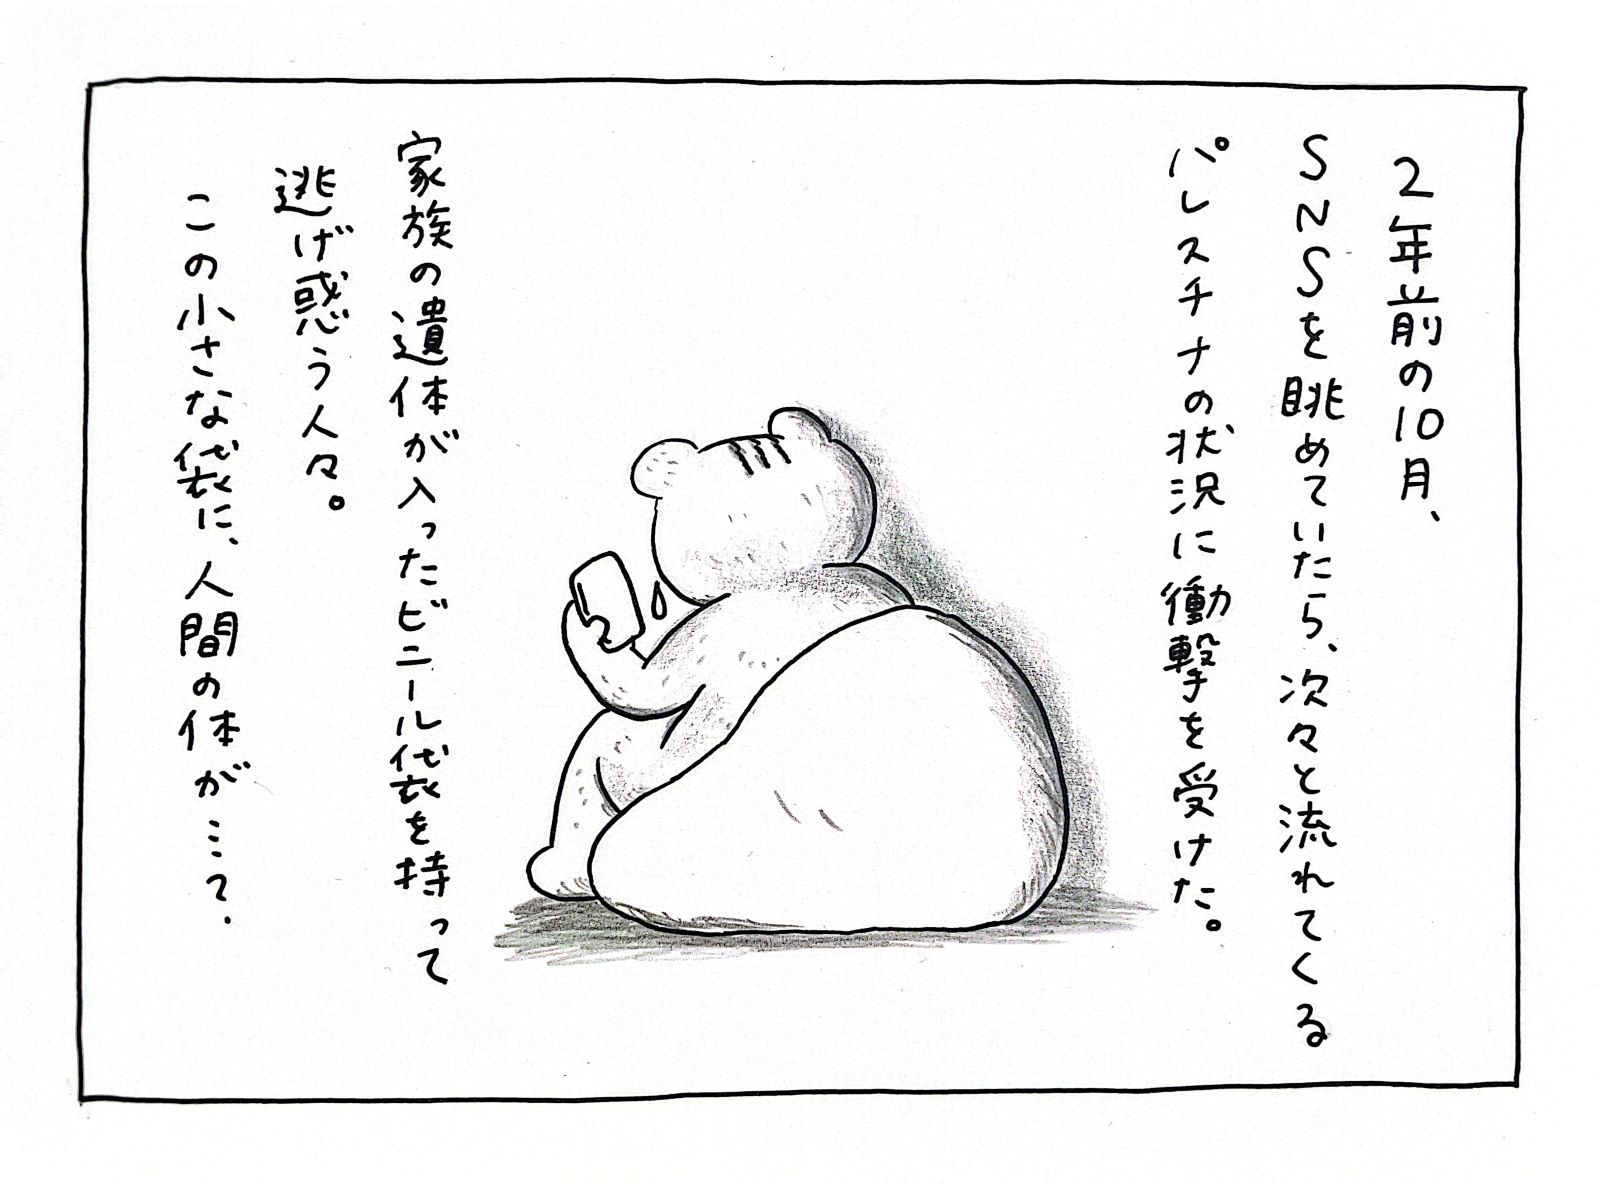 2年前の10月、
SNSを眺めていたら、次々と流れてくる
パレスチナの状況に衝撃を受けた。
家族の遺体が入ったビニール袋を持って
逃げ惑う人々。
この小さな袋に、人間の体が…?